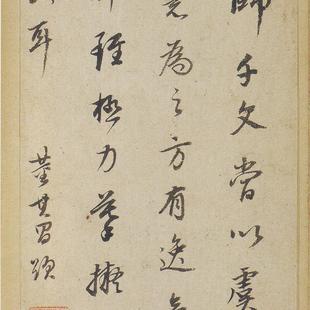 師千文嘗以虞
意為之方有逸氣
雖極力摹擬
耳
董其昌題